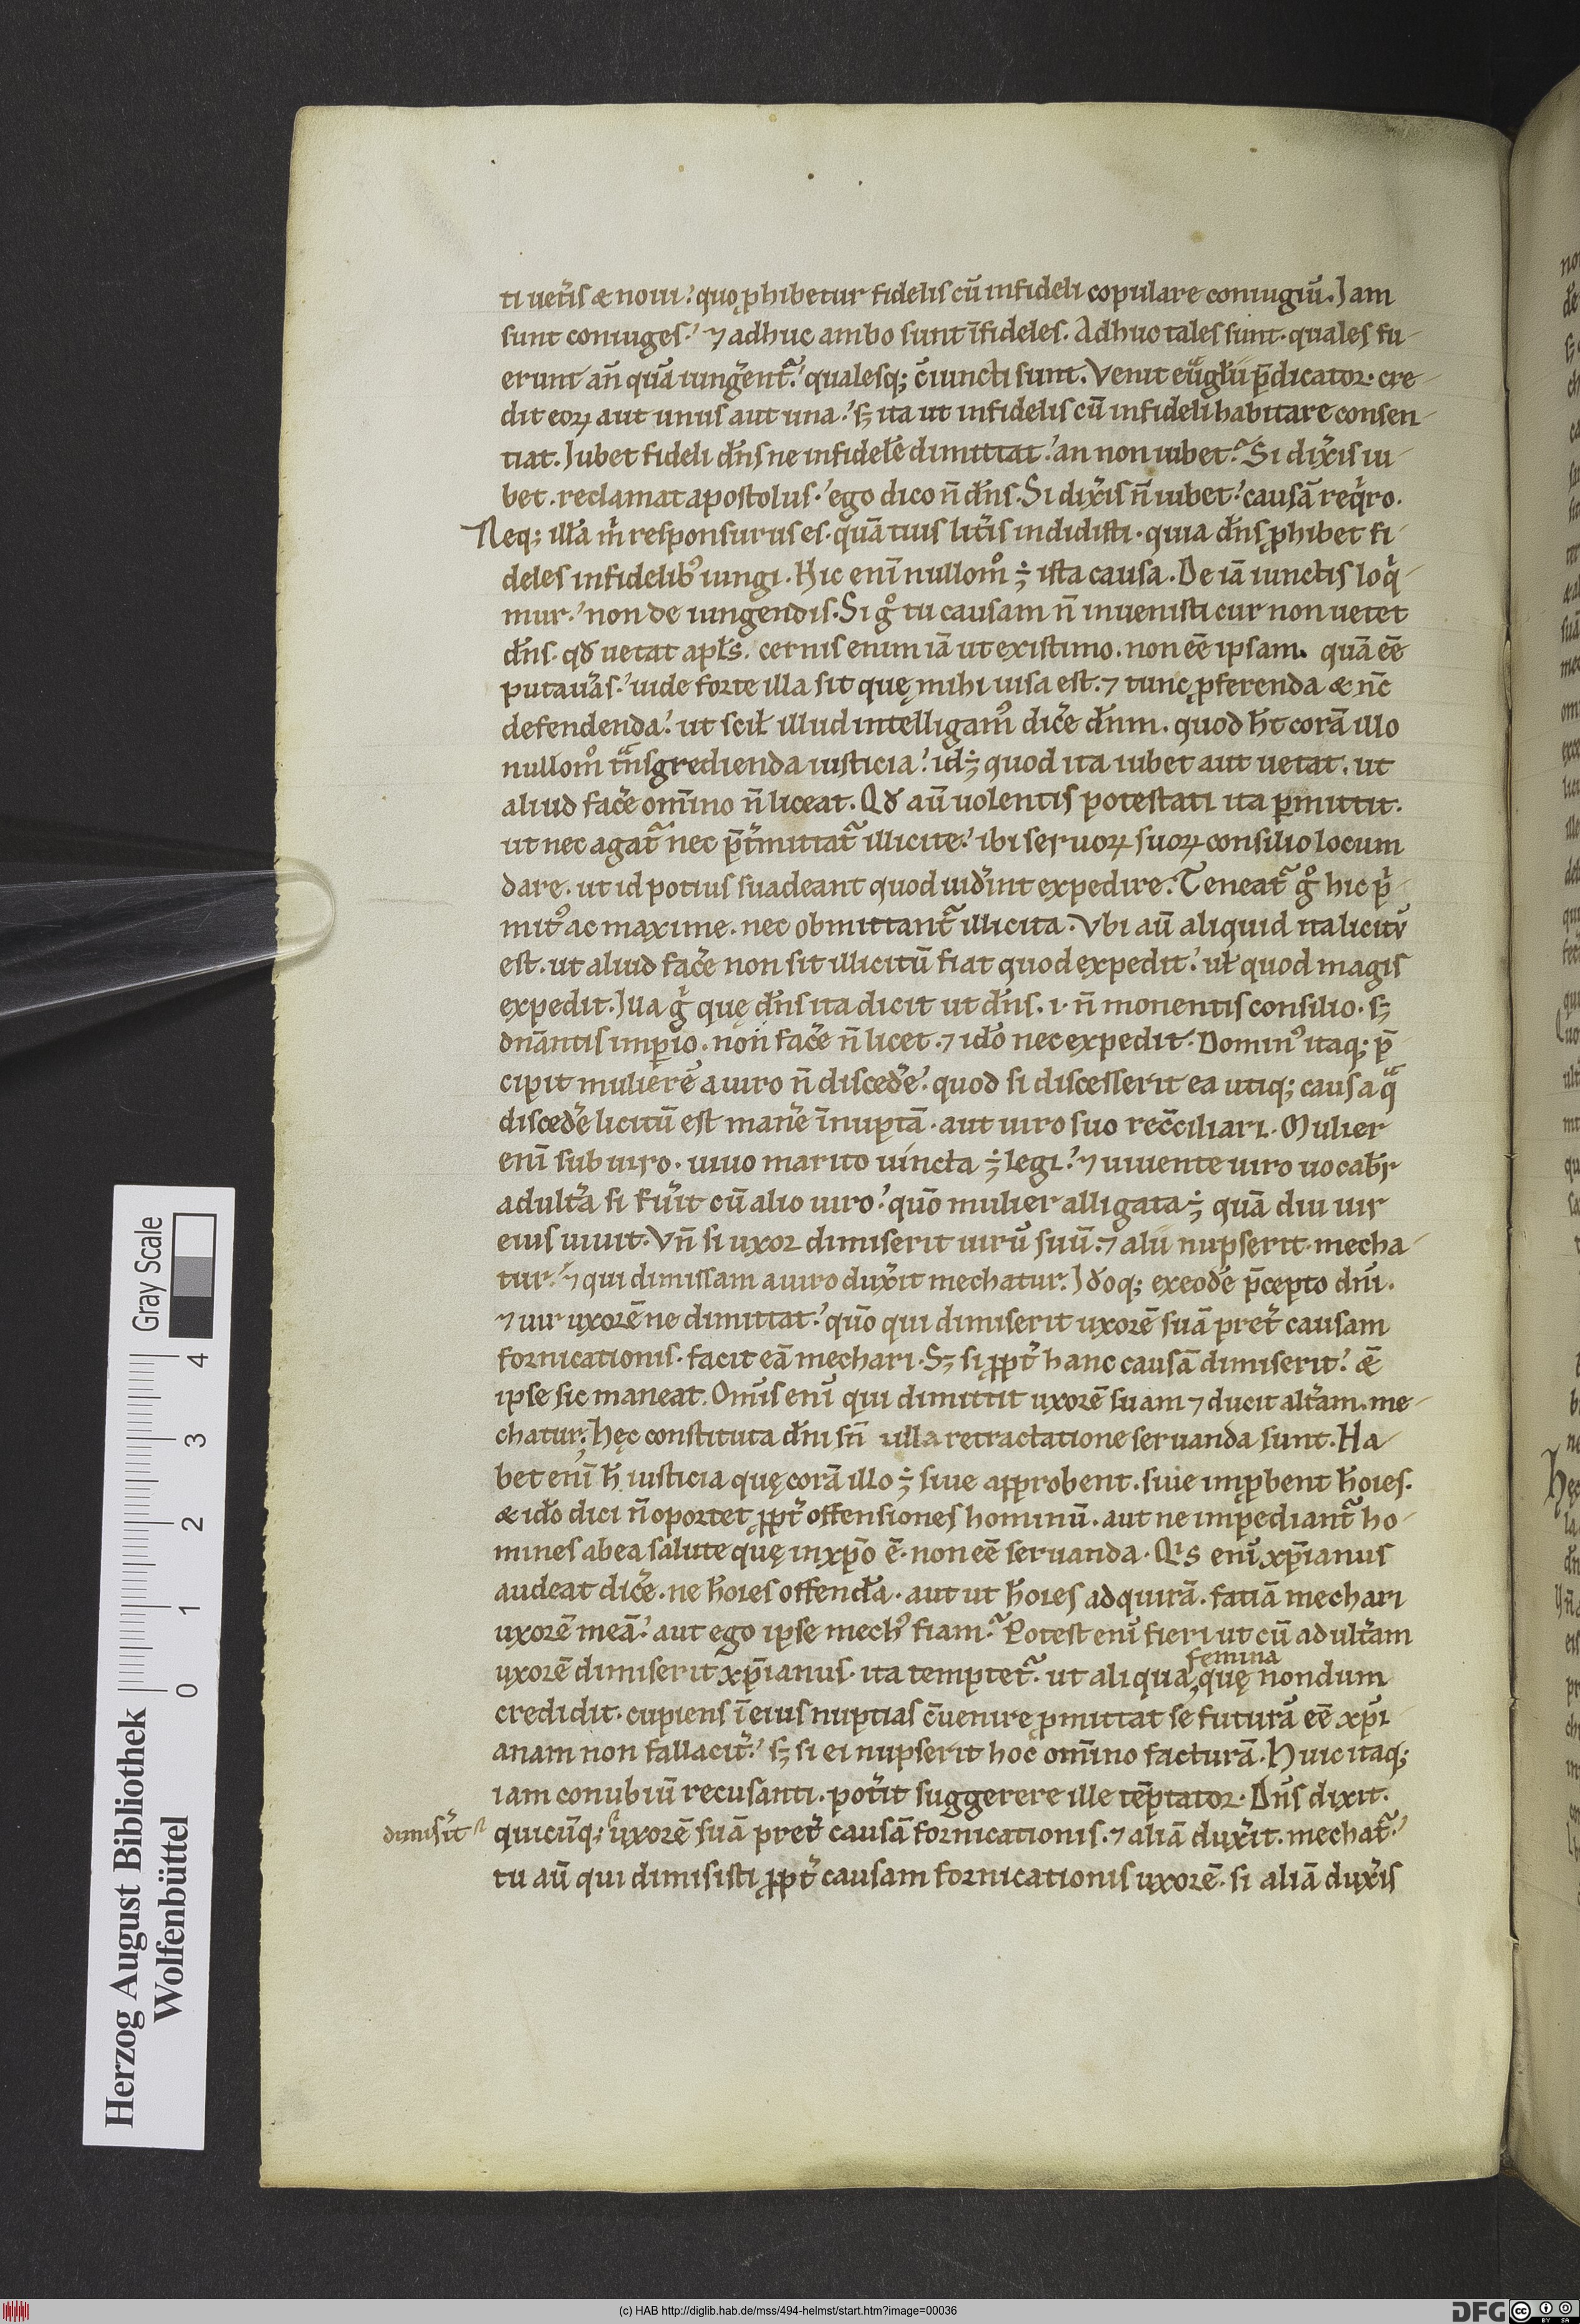 ti uet̾is & noui ? quo ꝓhibetur fidelis cū infideli copulare coniugiū . Iam
sunt coniuges ? ⁊ adhuc ambo sunt īfideles . Adhuc tales sunt · quales fu-
erunt an̄ quā iung̾ent᷑ ? qualesq; c̄iuncti sunt . Venit eūgłii p̄dicator · cre-
dit eoꝝ aut unus aut una ? sꝫ ita ut infidelis cū infideli habitare consen-
tiat . Iubet fideli dn̄s ne infidelē dimittat ? an non iubet ? Si dix̾is iu-
bet . reclamat apostolus ? ego dico n̄ dn̄s . Si dix̾is n̄ iubet ? causā req̇ro .
Neq; illā ṁ responsurus es · quā tuis lit̾is indidisti · quia dn̄s ꝓhibet fi-
deles infidelib᷒ iungi . Hic eni̅ nullom̊ ÷ ista causa . De iā iunctis loq̇-
mur ? non de iungendis . Si g̊ tu causam n̄ inuenisti cur non uetet
dn̄s · qd̄ uetat apłs . cernis enim iā ut existimo . non eē ipsam . quā eē
putau̾as ? uide forte illa sit quę mihi uisa est . ⁊ tunc ꝓferenda & nc̄
defendenda ? ut scił illud intelligam᷒ dic̾e dn̄m . quod ht̄ corā illo
nullom̊ tn̄sgredienda iusticia ? id ÷ quod ita iubet aut uetat . ut
aliud fac̾e om̄ino n̄ liceat . Qd̄ aū uolentis potestati ita ꝑmittit .
ut nec agat᷑ nec p̄t̾mittat᷑ illicite ? ibi seruoꝝ suoꝝ consilio locum
dare . ut id potius suadeant quod uid̾int expedire . Teneat᷑ g̊ hic ṗ-
mit᷒ ac maxime . nec obmittant᷑ illicita . Vbi aū aliquid ita licitū
est . ut aliud fac̾e non sit illicitū fiat quod expedit ? uł quod magis
expedit . Illa g̊ quę dn̄s ita dicit ut dn̄s . i · n̄ monentis consilio . sꝫ
dn̄antis imꝑio . non fac̾e n̄ licet . ⁊ ido̅ nec expedit . Domin᷒ itaq; p̄-
cipit mulierē a uiro n̄ disced̾e ? quod si discesserit ea utiq; causa qᷓ
disced̾e licitū est man̾e īnuptā · aut uiro suo rec̄ciliari . Mulier
eni̅ sub uiro . uiuo marito uincta ÷ legi ? ⁊ uiuente uiro uocabr̄
adult̾a si fu̾it cū alio uiro ? quō mulier alligata ÷ quā diu uir
eius uiuit . Vn̄ si uxor dimiserit uirū suū . ⁊ alii nupserit · mecha-
tur ? ⁊ qui dimissam a uiro dux̾it mechatur . Idoq; ex eodē p̄cepto dn̄i .
⁊ uir uxorē ne dimittat ? quō qui dimiserit uxorē suā pret̾ causam
fornicationis · facit eā mechari . Sꝫ si ꝓpt̾ hanc causā dimiserit ? &̄
ipse sic maneat . Omīs eni̅ qui dimittit uxorē suam ⁊ ducit alt̾am . me-
chatur ? hęc constituta dn̄i sn̄ ulla retractatione seruanda sunt . Ha-
bet eni̅ h̄ iusticia quę corā illo ÷ siue approbent . siue imꝓbent hoīes .
& ido̅ dici n̄ oportet ꝓpt̾ offensiones hominū . aut ne impediant᷑ ho-
mines ab ea salute quę in xp̄o ē · non eē seruanda . Qi̇s eni̅ xp̄ianus
audeat dic̾e . ne hoīes offendā . aut ut hoīes adquirā . fatiā mechari
uxorē meā ? aut ego ipse mech᷒ fiam ? Potest eni̅ fieri ut cū adult̾am
uxorē dimiserit xp̄ianus · ita temptet᷑ . ut aliqua femina quę nondum
credidit . cupiens ī eius nuptias c̄uenire ꝓmittat se futurā eē xp̄i-
anam non fallacit̾ ? sꝫ si ei nupserit hoc om̄ino facturā . Huic itaq;
iam conubiū recusanti . pot̾it suggerere ille tēptator . Dn̄s dixit .
dimis̾it quicūq; uxorē suā pret̾ causā fornicationis . ⁊ aliā dux̾it . mechat᷑ ?
tu aū qui dimisisti ꝓpt̾ causam fornicationis uxorē . si aliā dux̾is
Herzog August Bibliothek
Wolfenbüttel
Gray Scale
0 1 2 3 4
(c) HAB http://diglib.hab.de/mss/494-helmst/start.htm?image=00036
DFG